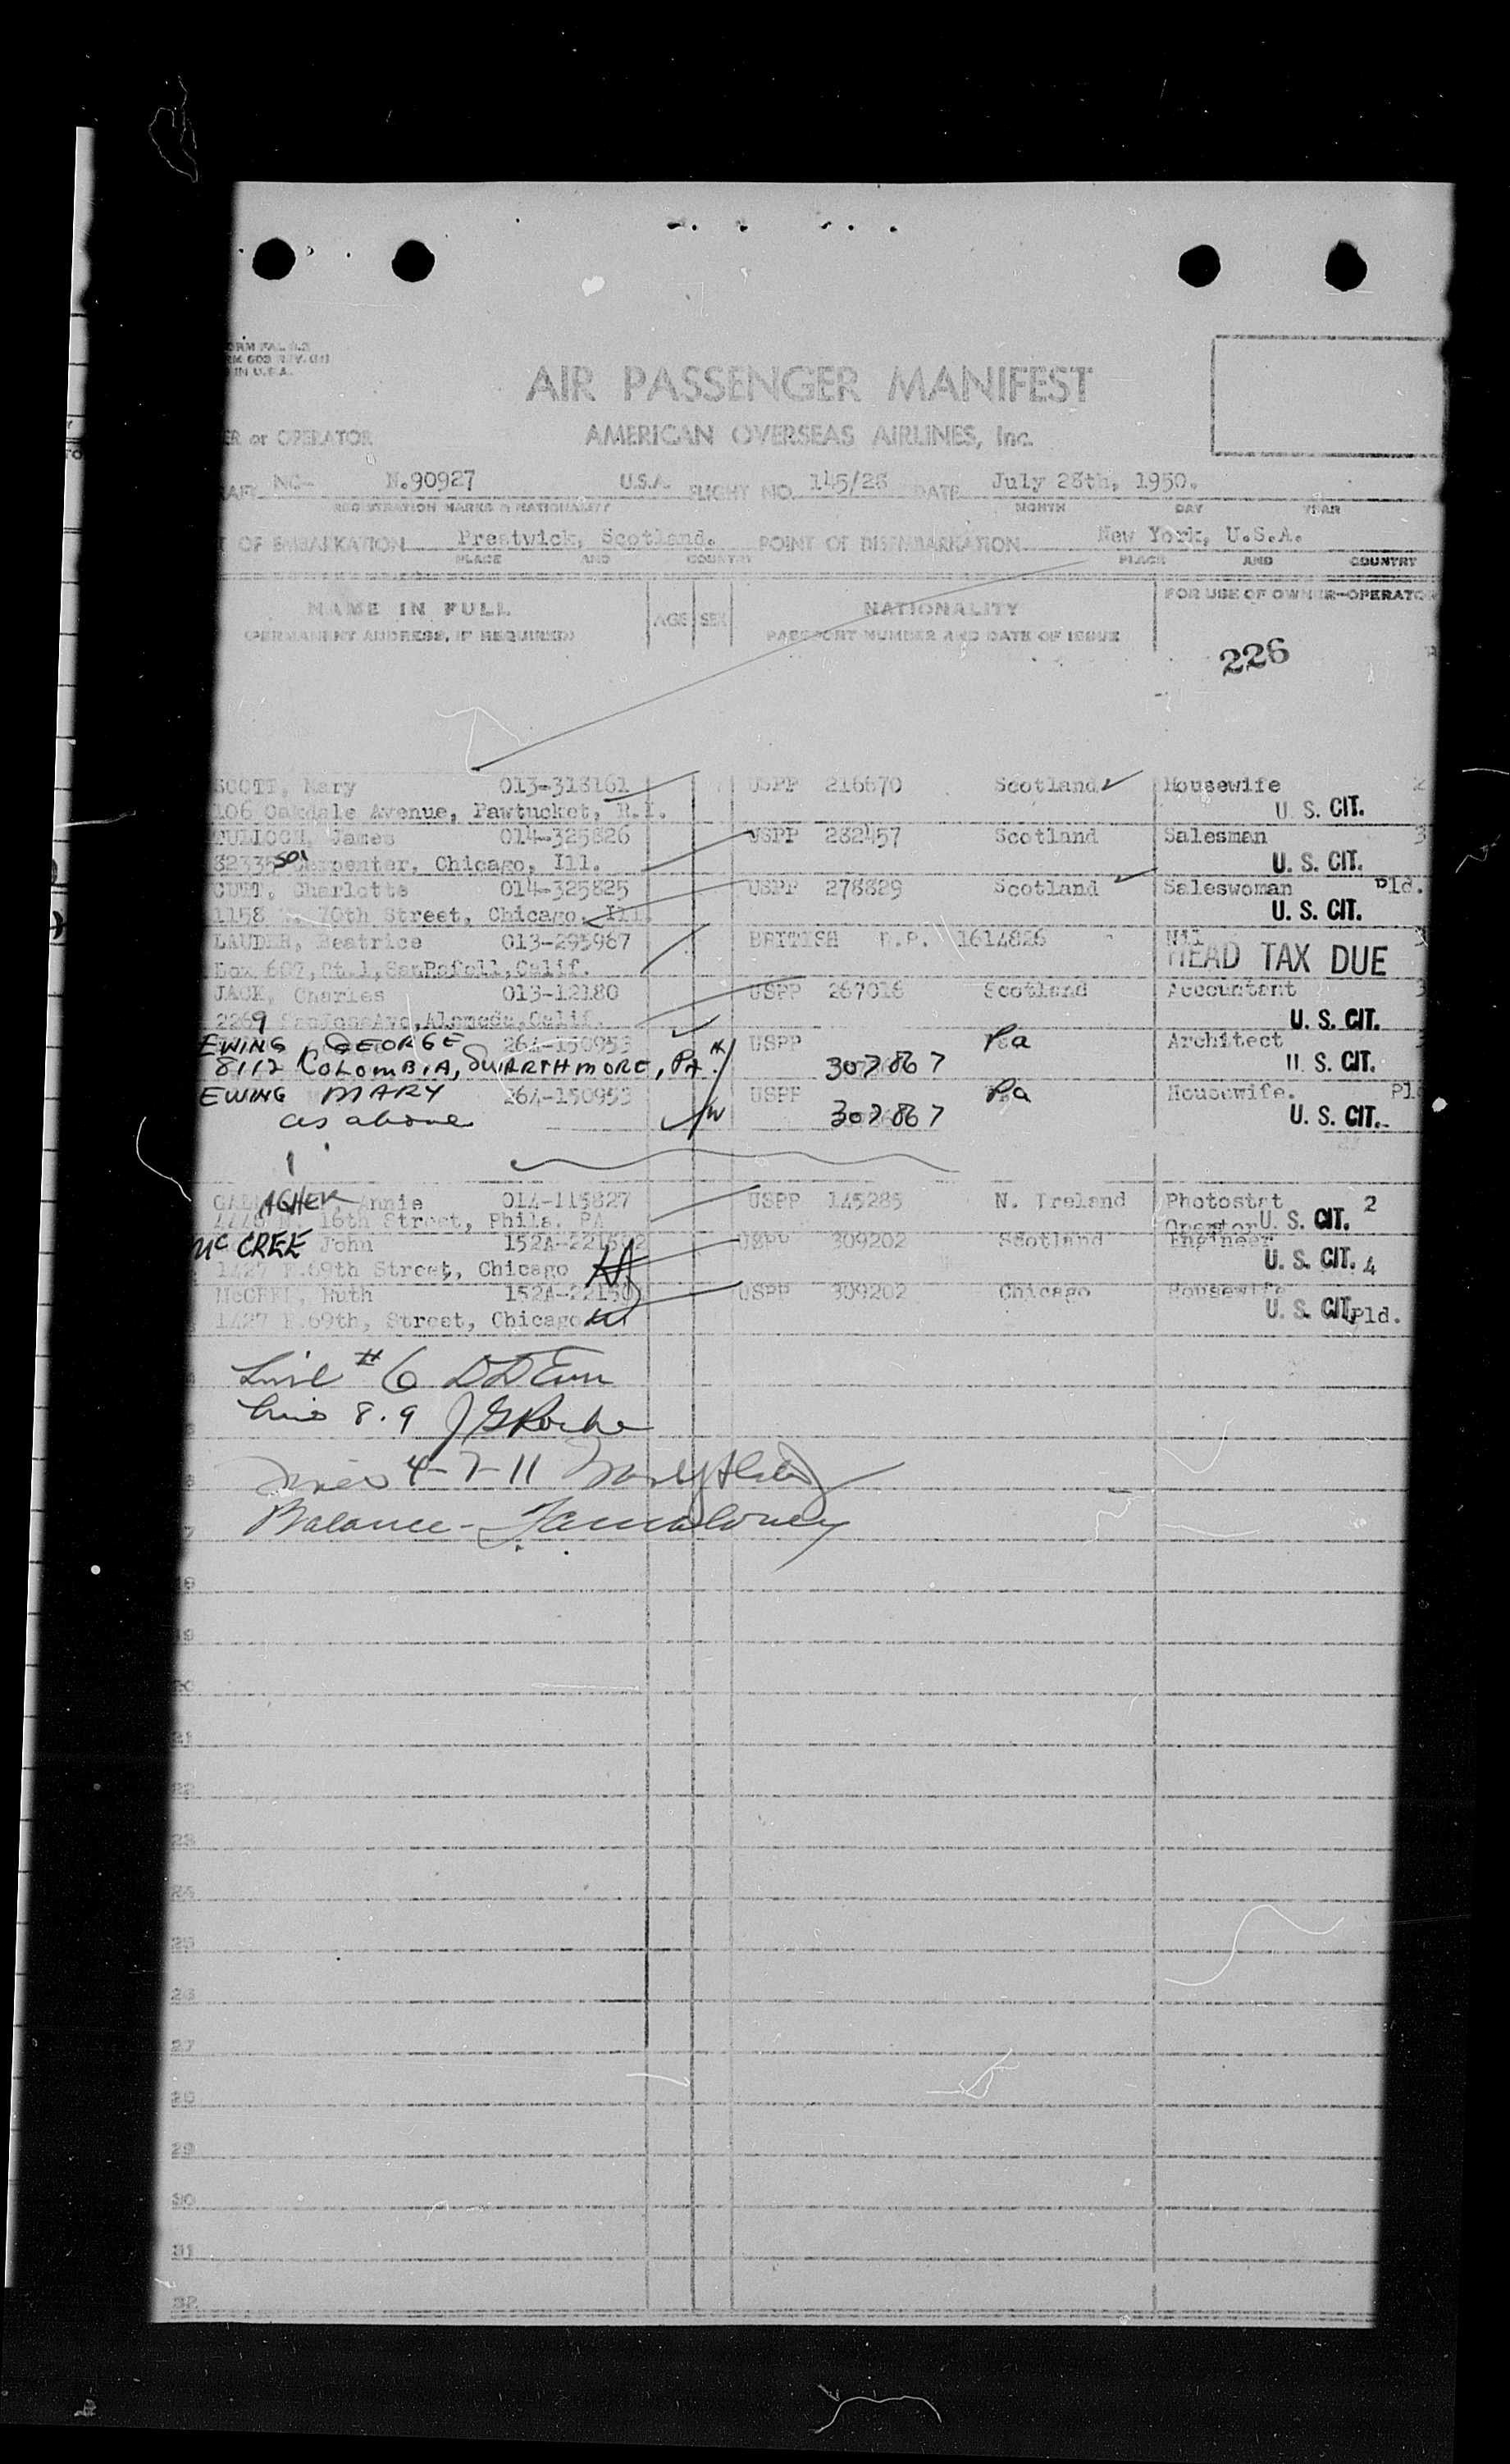 AIR PASSENGER MANIFEST
AMERICAN OVERSEAS AIRLINES, Inc.
ER or OPERATOR
N.90927 U.S.A. FLIGHT NO. 145/28 DATE July 28th, 1950.
REGISTRATION MARKS & NATIONALITY MONTH DAY YEAR
OF EMBARKATION Prestwick, Scotland. POINT OF DISEMBARKATION New York, U.S.A.
PLACE AND COUNTRY PLACE AND COUNTRY
NAME IN FULL AGE SEX NATIONALITY FOR USE OF OWNER-OPERATOR
(PERMANENT ADDRESS, IF REQUIRED) PASSPORT NUMBER AND DATE OF ISSUE
226
SCOTT, Mary 013-318161 USPP 216670 Scotland Housewife
106 Oakdale Avenue, Pawtucket, R.I. U. S. CIT.
James 014-325826 USPP 232457 Scotland Salesman
Carpenter, Chicago, Ill. U. S. CIT.
Charlotte 014-325825 USPP 278829 Scotland Saleswoman Pld.
1158 70th Street, Chicago, Ill. U. S. CIT.
LAUDER, Beatrice 013-295967 BRITISH 1614826 Nil
Calif. HEAD TAX DUE
JACK, Charles 013-12180 USPP 267016 Scotland Accountant
2269 SanJoseAve, Alameda, Calif. U. S. CIT.
EWING GEORGE 264-150953 USPP Pa Architect
8112 COLOMBIA, SWARTHMORE, PA. 307867 U. S. CIT.
EWING MARY 264-150953 USPP Pa Housewife.
as above 307867 U. S. CIT.
GALLAGHER, Annie 014-115827 USPP 145285 N. Ireland Photostat 2
16th Street, Phila. PA Operator U. S. CIT.
McCREE John USPP 309202 Scotland Engineer
1427 E.69th Street, Chicago U. S. CIT. 4
Ruth USPP 309202 Chicago Housewife
1427 E.69th, Street, Chicago U. S. CIT. Pld.
Line #6
Line 8.9
Lines 4-7-11
Balance-
19
20
21
22
23
24
25
26
27
28
29
30
31
32